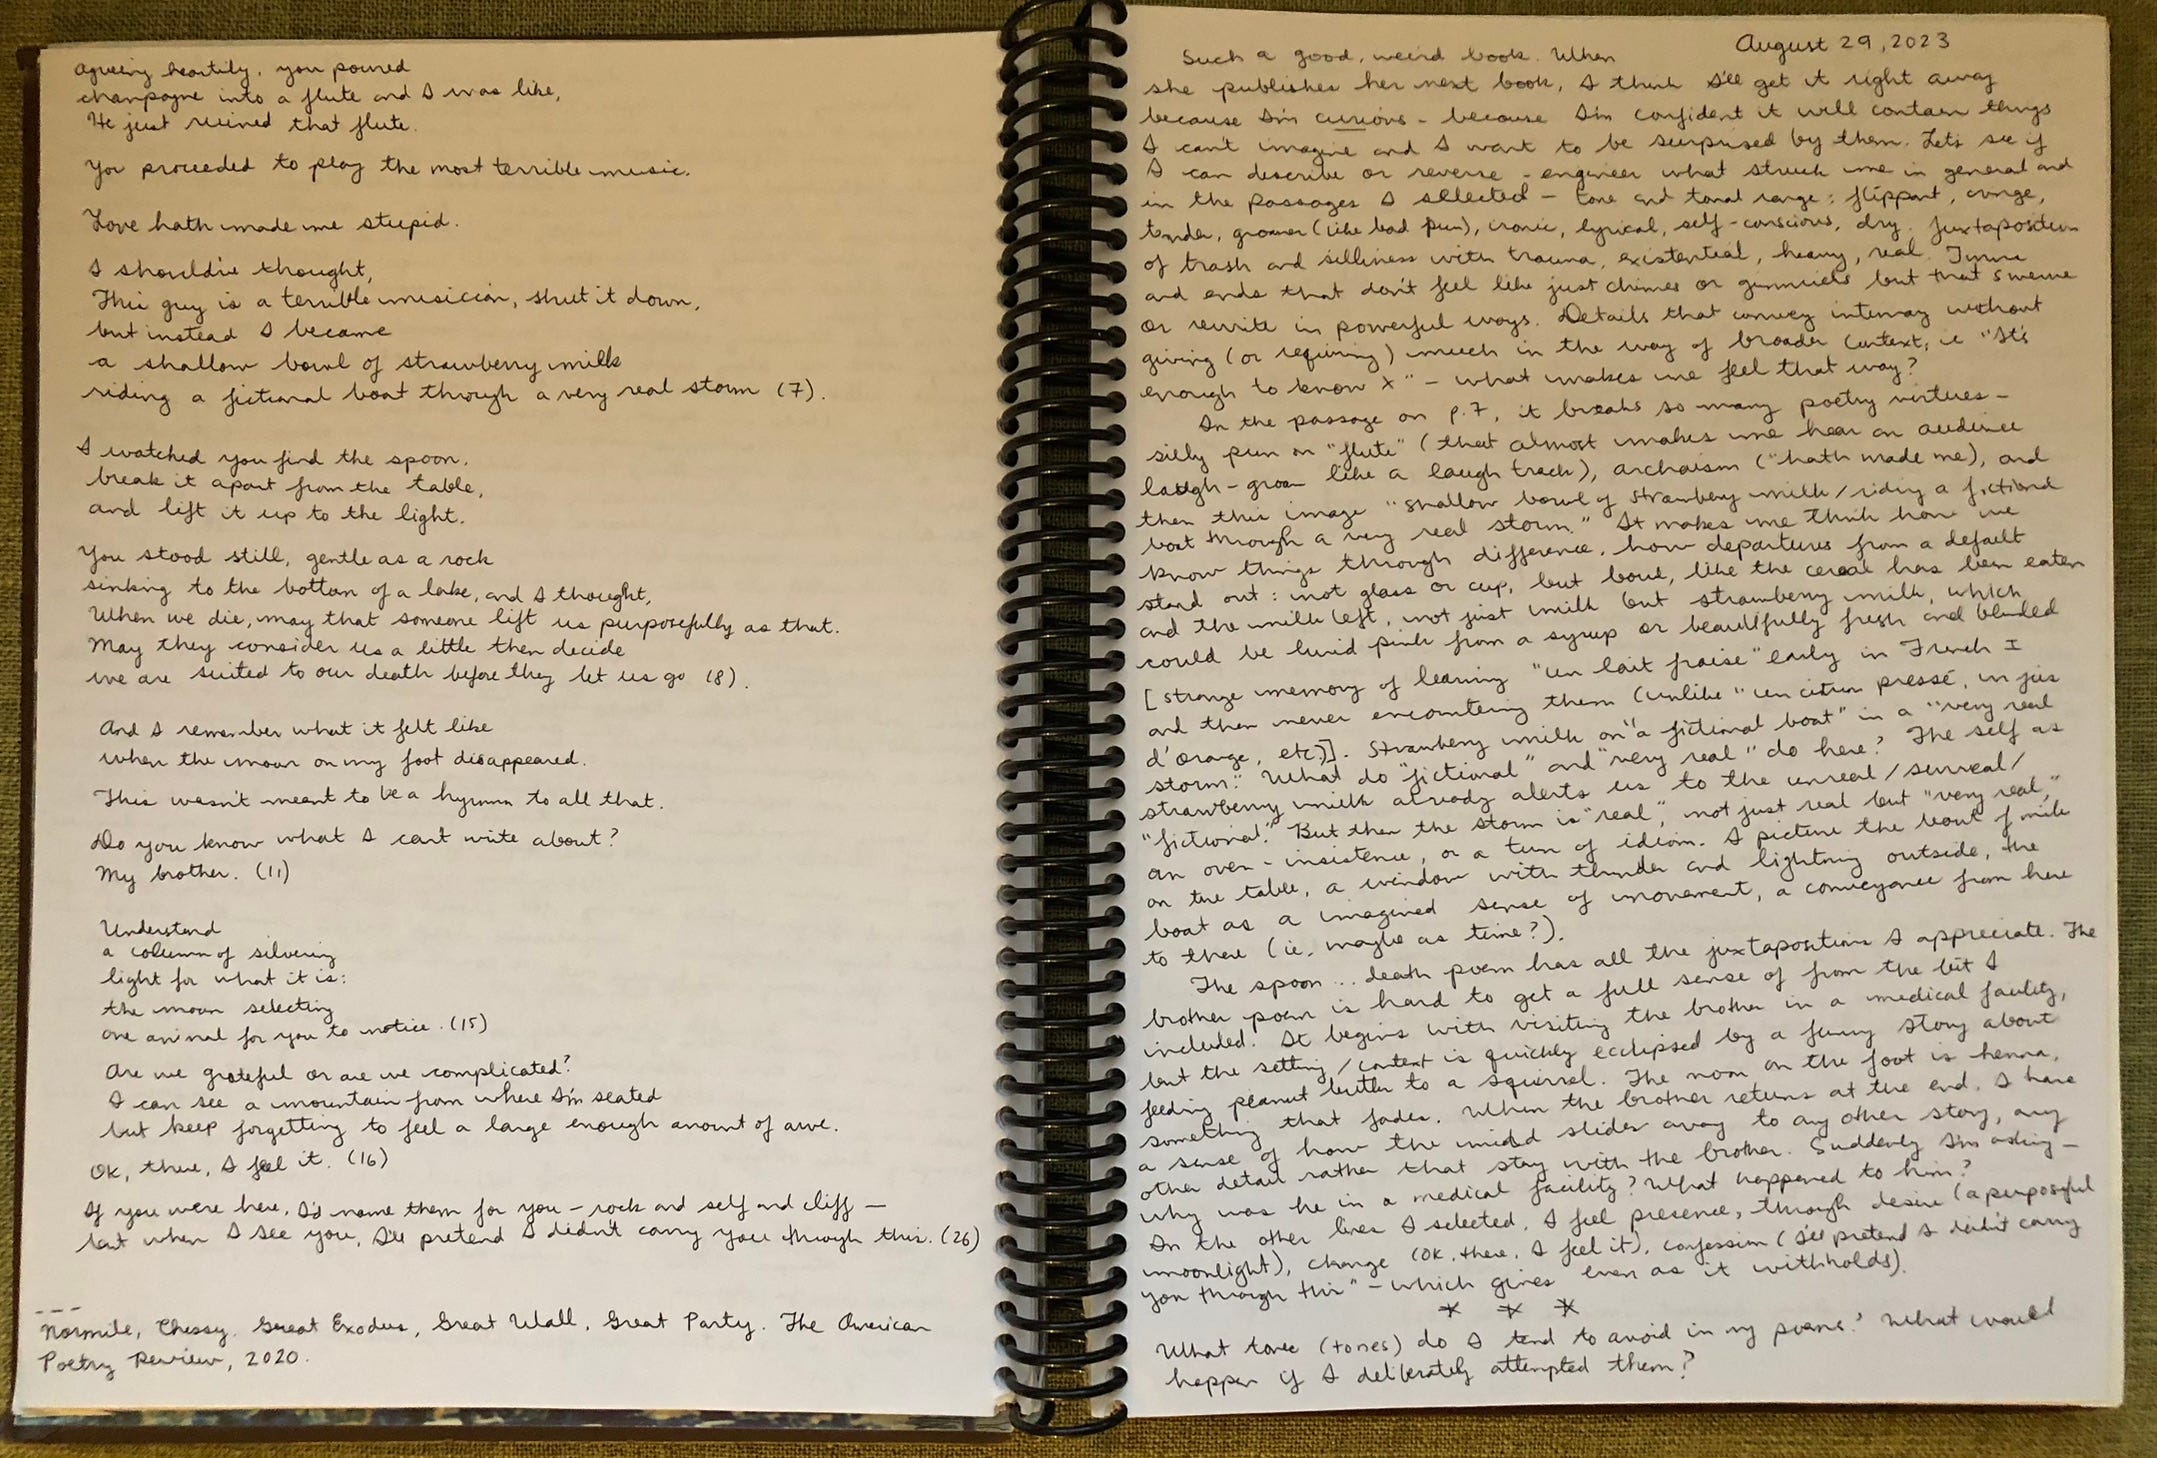 agreeing heartily, you poured
champagne into a flute and I was like,
He just ruined that flute.
You proceeded to play the most terrible music.
Love hath made me stupid.
I should've thought,
This guy is a terrible musician, shut it down,
but instead I became
a shallow bowl of strawberry milk
riding a fictional boat through a very real storm (7).
I watched you find the spoon,
break it apart from the table,
and lift it up to the light.
You stood still, gentle as a rock
sinking to the bottom of a lake, and I thought,
When we die, may that someone lift us purposefully as that.
May they consider us a little then decide
we are suited to our death before they let us go (8).
And I remember what it felt like
when the moon on my foot disappeared.
This wasn't meant to be a hymn to all that.
Do you know what I can't write about?
My brother. (11)
Understand
a column of silvering
light for what it is:
the moon selecting
one animal for you to notice. (15)
Are we grateful or are we complicated?
I can see a mountain from where I'm seated
but keep forgetting to feel a large enough amount of awe.
OK, there, I feel it. (16)
If you were here, I'd name them for you – rock and self and cliff –
but when I see you, I'll pretend I didn't carry you through this. (26)
---
Normile, Chessy. Great Exodus, Great Wall, Great Party. The American
Poetry Review, 2020.
August 29, 2023
Such a good, weird book. When
she publishes her next book, I think I'll get it right away
because I'm curious - because I'm confident it will contain things
I can't imagine and I want to be surprised by them. Let's see if
I can describe or reverse-engineer what struck me in general and
in the passages I selected – tone and tonal range: flippant, cringe,
tender, groaner (like bad pun), ironic, lyrical, self-conscious, dry. Juxtaposition
of trash and silliness with trauma, existential, heavy, real. Turns
and ends that don't feel like just chimes or gimmicks but that swerve
or rewrite in powerful ways. Details that convey intimacy without
giving (or requiring) much in the way of broader context, ie "It's
enough to know x" – what makes me feel that way?
In the passage on p.7, it breaks so many poetry virtues –
silly pun on "flute" (that almost makes me hear an audience
laugh-groan like a laugh track), archaism ("hath made me), and
then this image "shallow bowl of strawberry milk/riding a fictional
boat through a very real storm." It makes me think how we
know things through difference, how departures from a default
stand out: not glass or cup, but bowl, like the cereal has been eaten
and the milk left, not just milk but strawberry milk, which
could be lurid pink from a syrup or beautifully fresh and blended
[strange memory of learning "un lait fraise" early in French I
and then never encountering them (unlike "un citron pressé, un jus
d'orange, etc)]. Strawberry milk on "a fictional boat" in a "very real
storm." What do "fictional" and "very real" do here? The self as
strawberry milk already alerts us to the unreal/surreal/
"fictional." But then the storm is "real", not just real but "very real,"
an over-insistence, or a turn of idiom. I picture the bowl of milk
on the table, a window with thunder and lightning outside, the
boat as a imagined sense of movement, a conveyance from here
to there (ie, maybe as time?).
The spoon... death poem has all the juxtapositions I appreciate. The
brother poem is hard to get a full sense of from the bit I
included. It begins with visiting the brother in a medical facility,
but the setting/context is quickly ecclipsed by a funny story about
feeding peanut butter to a squirrel. The moon on the foot is henna,
something that fades. When the brother returns at the end, I have
a sense of how the mind slides away to any other story, any
other detail rather that stay with the brother. Suddenly I'm asking –
why was he in a medical facility? What happened to him?
In the other lines I selected, I feel presence, through desire (a purposeful
moonlight), change (OK, there, I feel it), confession (I'll pretend I didn't carry
you through this" – which gives even as it withholds).
* * *
What tone (tones) do I tend to avoid in my poems? What would
happen if I deliberately attempted them?